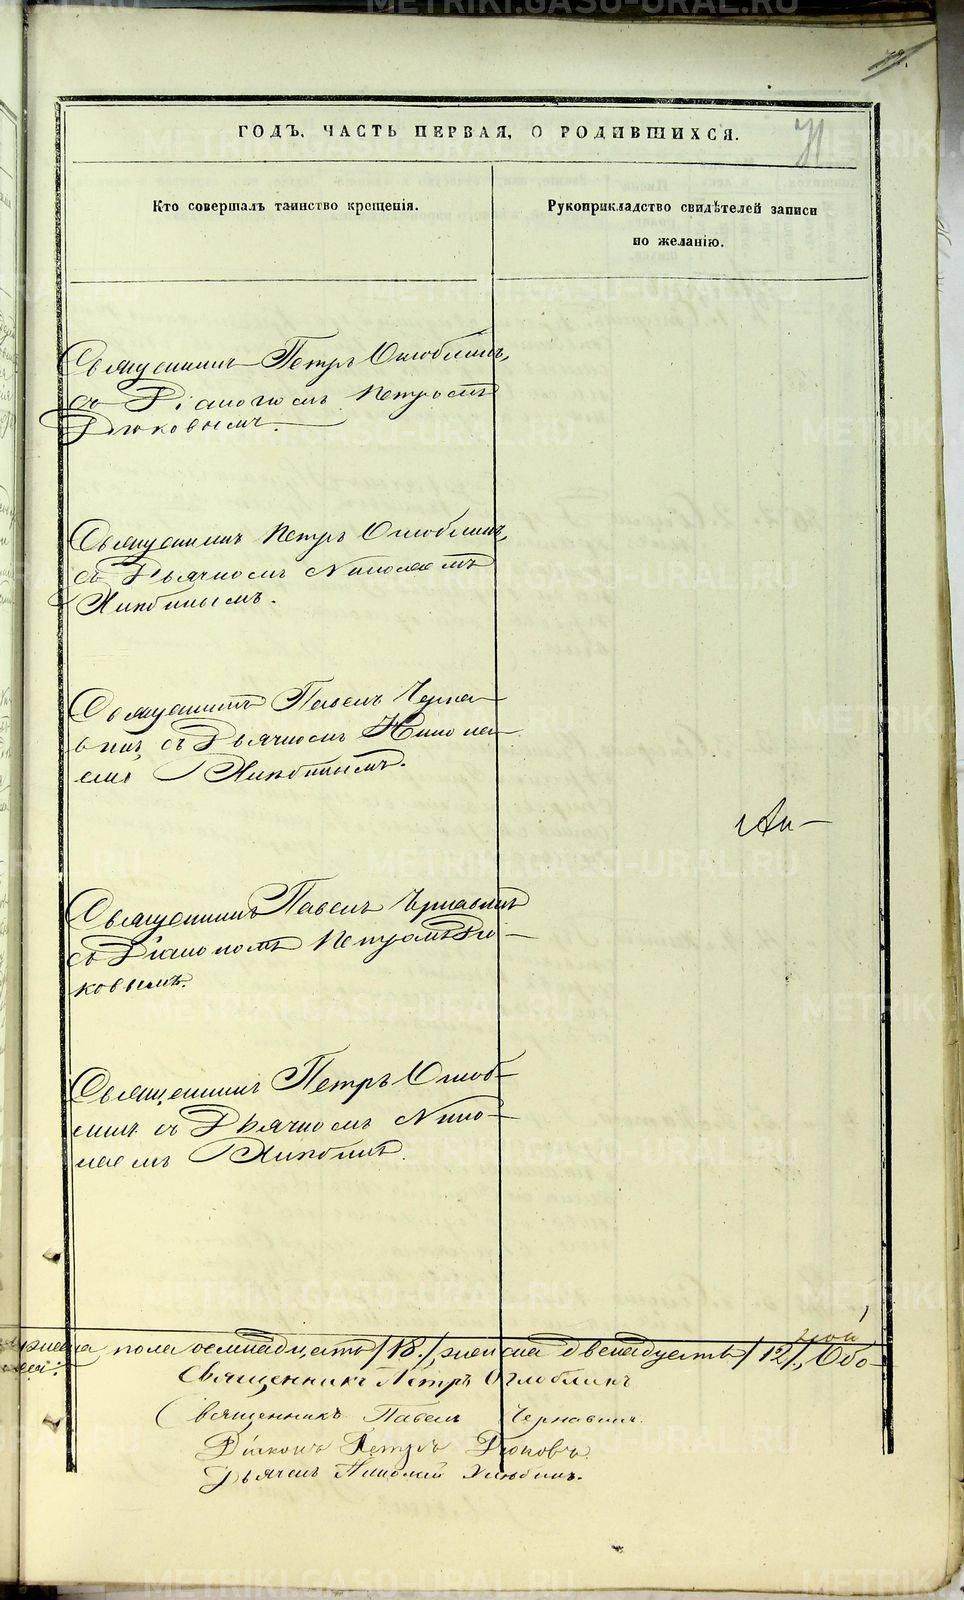 ГОДЪ, ЧАСТЬ ПЕРВАЯ, О РОДИВШИХСЯ.
71
Кто совершалъ таинство крещенія.
Рукоприкладство свидѣтелей записи
по желанію.
Священникъ Петръ Оглоблинъ,
съ Діакономъ Петромъ
Дюковымъ.
Священникъ Петръ Оглоблинъ,
съ Дьячкомъ Николаемъ
Хлюбинымъ.
Священникъ Павелъ Черна-
винъ, съ Дьячкомъ Никола-
емъ Хлюбинымъ.
Священникъ Павелъ Чернавинъ
съ Діакономъ Петромъ Дю-
ковымъ.
Священникъ Петръ Оглоб-
линъ съ Дьячкомъ Нико-
лаемъ
пола осмнадцать /18/, женска двенадцать /12/, Обо-
Священникъ Петръ Оглоблинъ
Священникъ Павелъ Чернавинъ.
Діаконъ Петръ Дюковъ.
Дьячекъ Николай Хлюбинъ.
METRIKI.GASO-URAL.RU